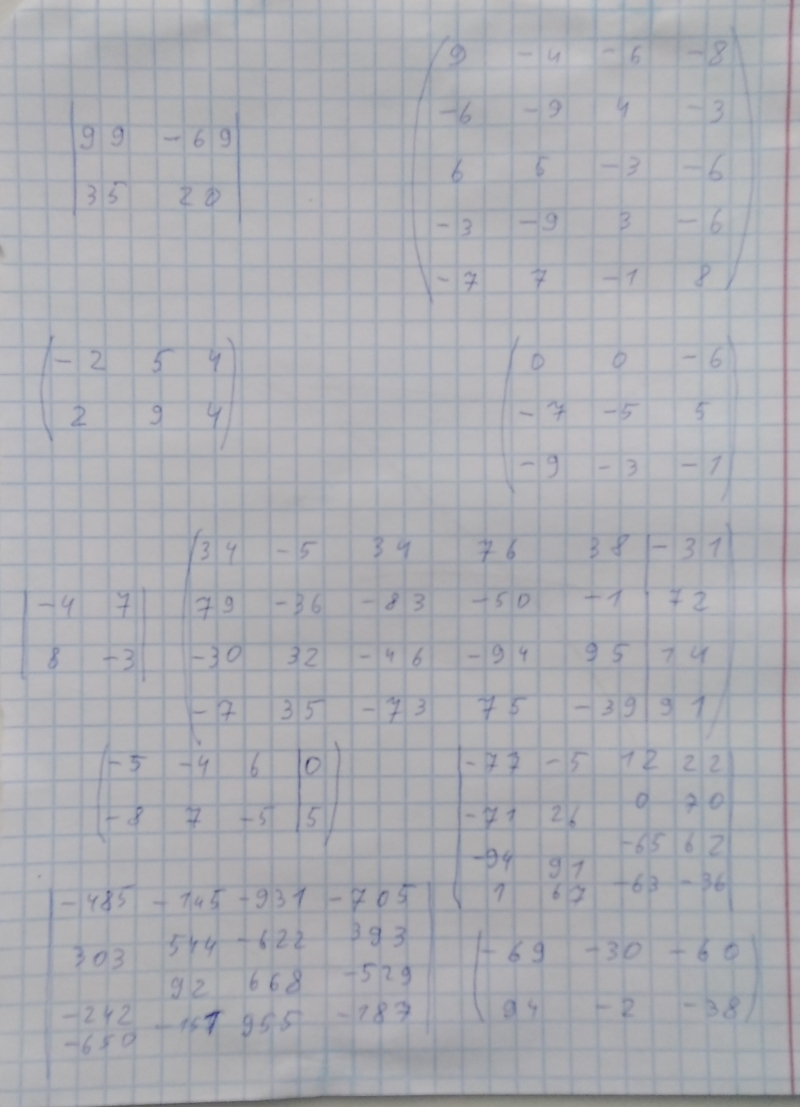 |99 -69|
|35 20|
(9 -4 -6 -8)
(-6 -9 4 -3)
(6 5 -3 -6)
(-3 -9 3 -6)
(-7 7 -1 8)
(-2 5 4)
(2 9 4)
(0 0 -6)
(-7 -5 5)
(-9 -3 -1)
|-4 7|
|8 -3|
(34 -5 34 76 38 | -31)
(79 -36 -83 -50 -1 | 72)
(-30 32 -46 -94 95 | 14)
(-7 35 -73 75 -39 | 91)
(-5 -4 6 | 0)
(-8 7 -5 | 5)
|-77 -5 12 22|
|-71 26 0 70|
|-94 91 -65 62|
|1 67 -63 -36|
|-485 -145 -931 -705|
|303 544 -622 393|
|-242 92 668 -529|
|-650 955 -187|
(-69 -30 -60)
(94 -2 -38)